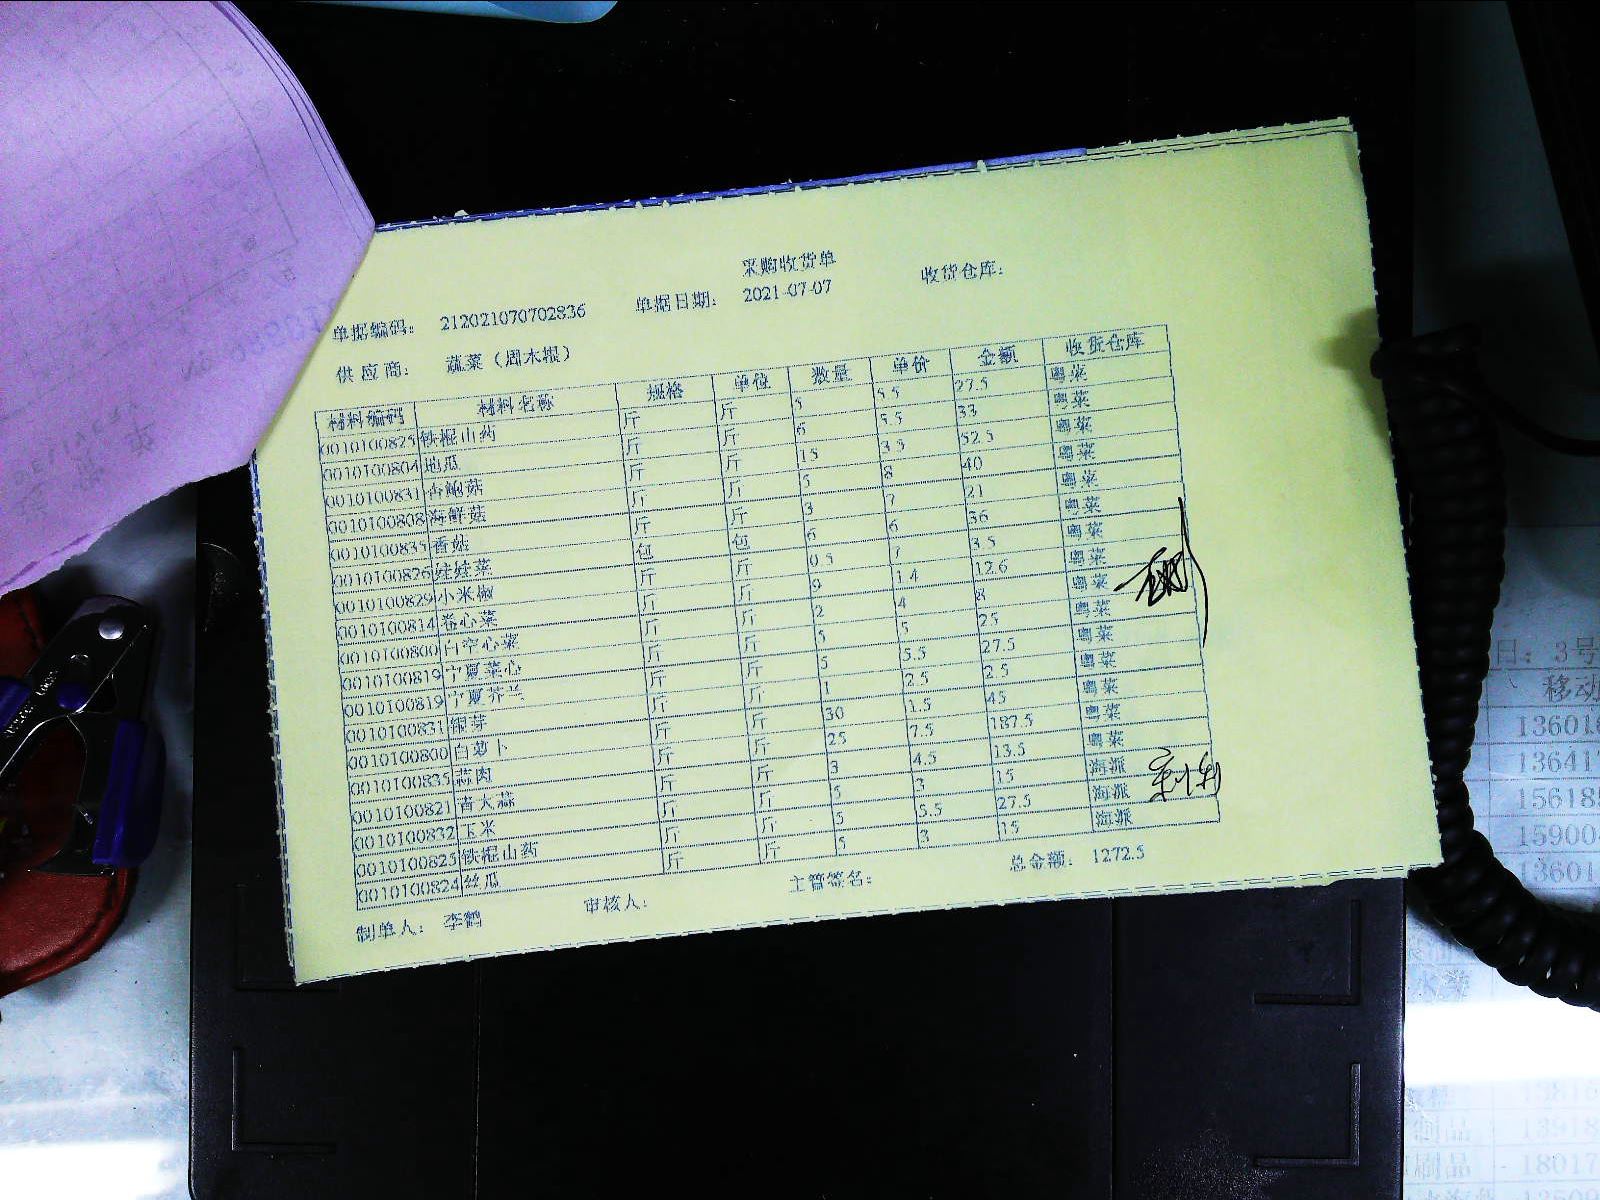 采购收货单
单据编码： 212021070702836 单据日期： 2021-07-07 收货仓库：
供应商： 蔬菜（周木根）
材料编码 材料名称 规格 单位 数量 单价 金额 收货仓库
0010100825 铁棍山药 斤 斤 5 5.5 27.5 粤菜
0010100804 地瓜 斤 斤 6 5.5 33 粤菜
0010100831 杏鲍菇 斤 斤 15 3.5 52.5 粤菜
0010100808 海鲜菇 斤 斤 5 8 40 粤菜
0010100835 香菇 斤 斤 3 7 21 粤菜
0010100826 娃娃菜 包 包 6 6 36 粤菜
0010100829 小米椒 斤 斤 0.5 7 3.5 粤菜
0010100814 卷心菜 斤 斤 9 1.4 12.6 粤菜
0010100800 白空心菜 斤 斤 2 4 8 粤菜
0010100819 宁夏菜心 斤 斤 5 5 25 粤菜
0010100819 宁夏芥兰 斤 斤 5 5.5 27.5 粤菜
0010100831 银芽 斤 斤 1 2.5 2.5 粤菜
0010100800 白萝卜 斤 斤 30 1.5 45 粤菜
0010100835 蒜肉 斤 斤 25 7.5 187.5 粤菜
0010100821 青大蒜 斤 斤 3 4.5 13.5 粤菜
0010100832 玉米 斤 斤 5 3 15 海派
0010100825 铁棍山药 斤 斤 5 5.5 27.5 海派
0010100824 丝瓜 斤 斤 5 3 15 海派
制单人： 李鹤 审核人： 主管签名： 总金额： 1272.5
日：3号
移动